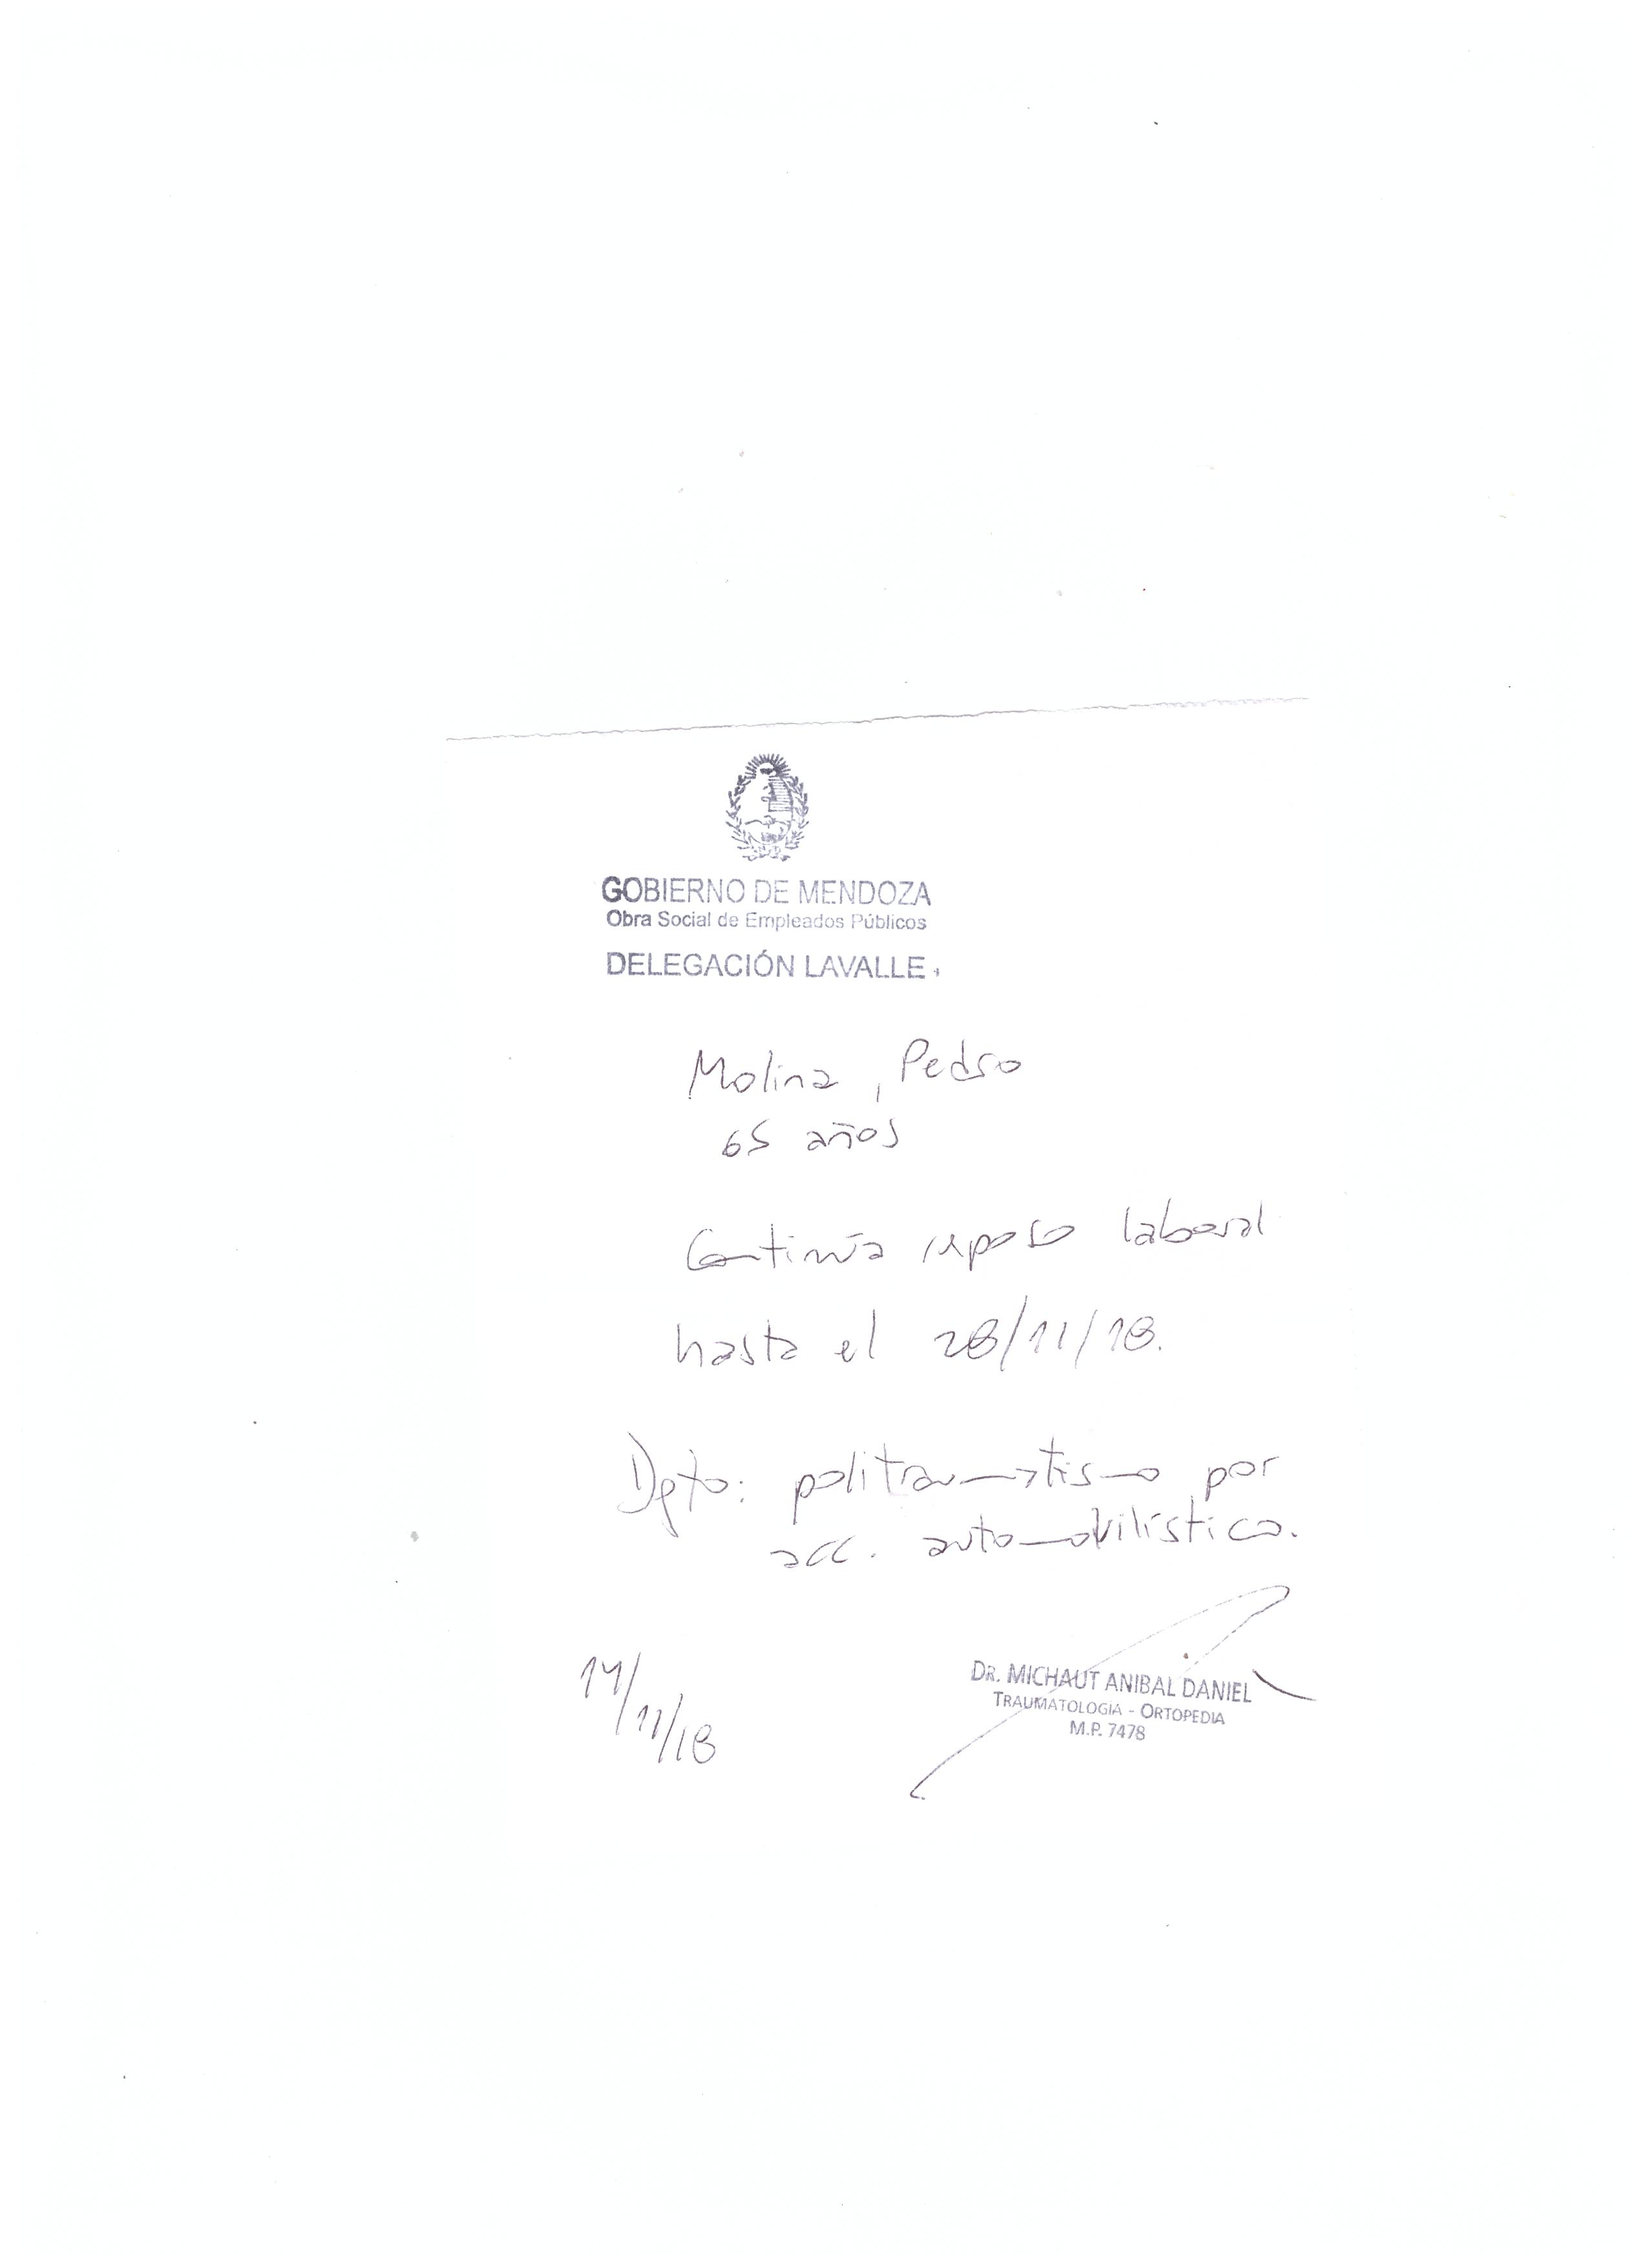 GOBIERNO DE MENDOZA
Obra Social de Empleados Públicos
DELEGACIÓN LAVALLE
Molina, Pedro
65 años
Continúa reposo laboral
hasta el 28/11/18.
Dgto: politraumatismo por
acc. automovilístico.
14/11/18
DR. MICHAUT ANIBAL DANIEL
TRAUMATOLOGIA - ORTOPEDIA
M.P. 7478